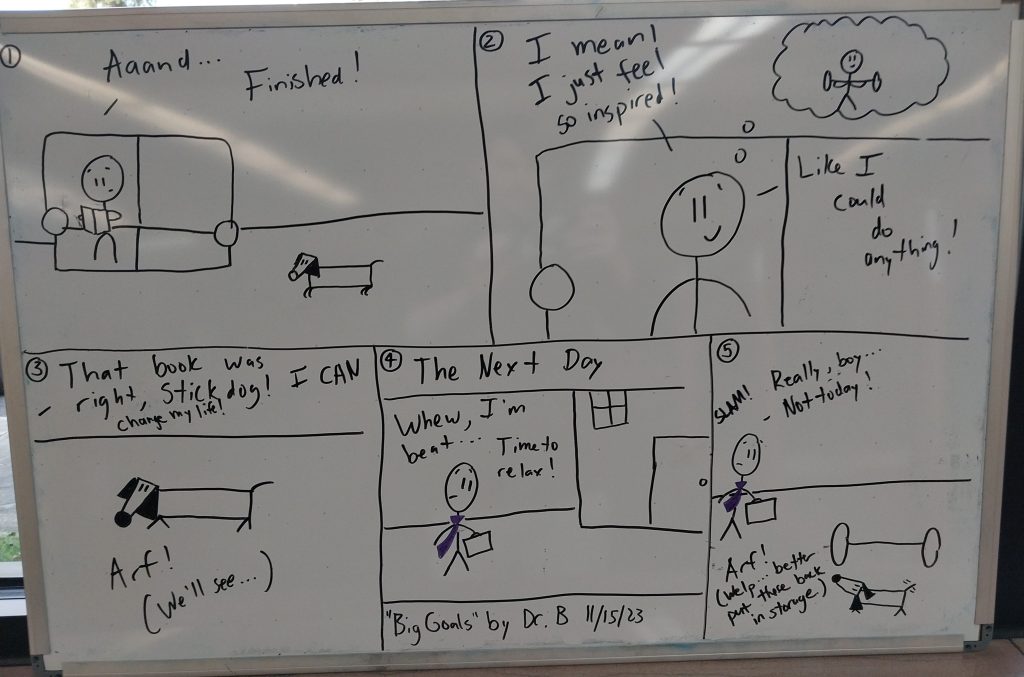 ①
Aaand...
Finished!
②
I mean!
I just feel
so inspired!
Like I
could
do
anything!
③
That book was
right, Stick dog! I CAN
change my life!
Arf!
(We'll see...)
④
The Next Day
Whew, I'm
beat...
Time to
relax!
"Big Goals" by Dr. B 11/15/23
⑤
SLAM!
Really, boy...
Not today!
Arf!
(Welp... better
put these back
in storage)